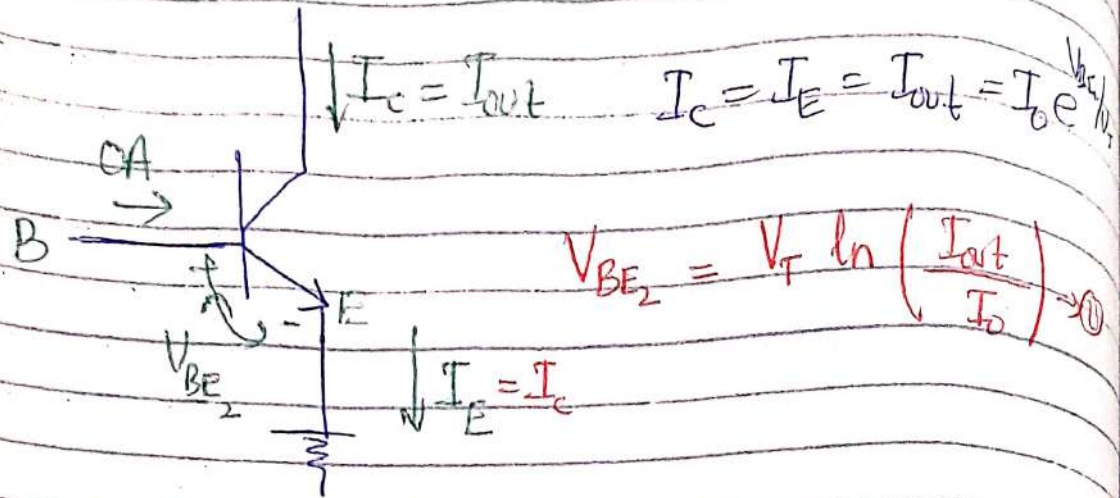 I_C = I_out
I_C = I_E = I_out = I_0 e^{V_BE/V_T}
0A →
B
V_BE_2 = V_T ln (I_out / I_0) → ①
+ - E
V_BE_2
I_E = I_C